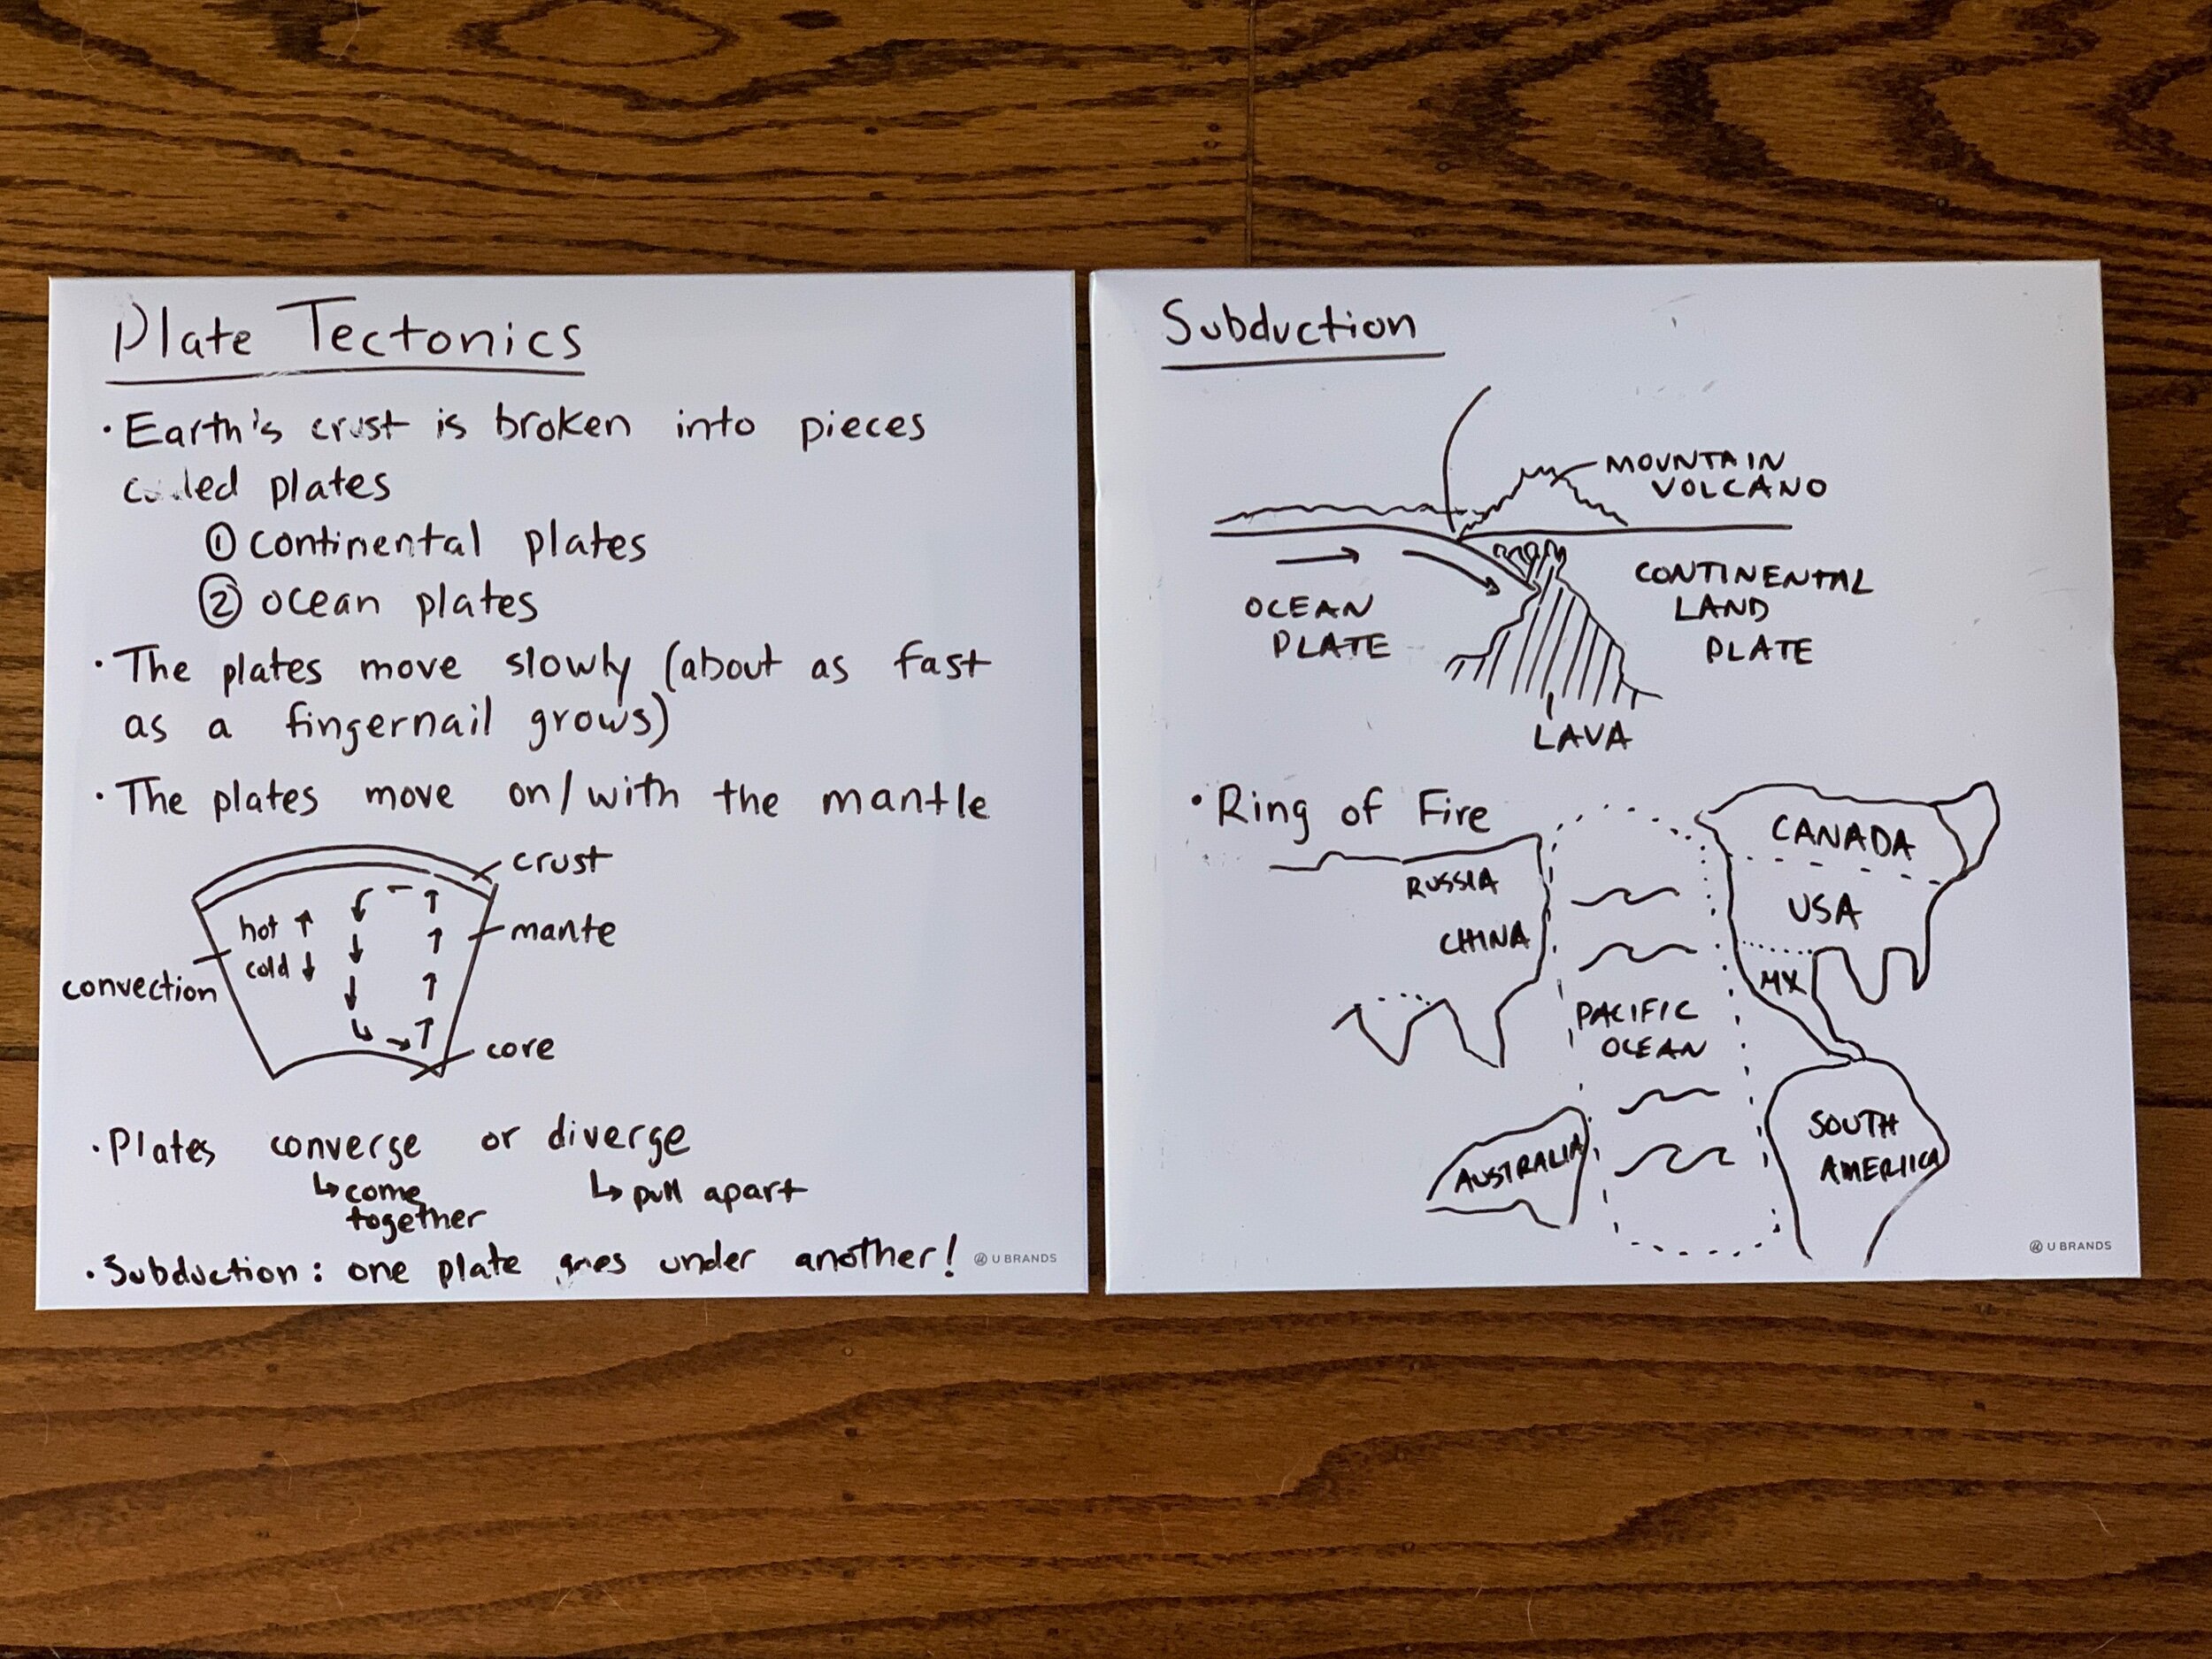 Plate Tectonics
• Earth's crust is broken into pieces
called plates
① continental plates
② ocean plates
• The plates move slowly (about as fast
as a fingernail grows)
• The plates move on/with the mantle
crust
hot ↑
mante
cold ↓
convection
core
• Plates converge or diverge
↳ come
together
↳ pull apart
• Subduction: one plate goes under another!
U BRANDS
Subduction
MOUNTAIN
VOLCANO
OCEAN
PLATE
CONTINENTAL
LAND
PLATE
LAVA
• Ring of Fire
RUSSIA
CHINA
CANADA
USA
MX
PACIFIC
OCEAN
AUSTRALIA
SOUTH
AMERIICA
U BRANDS